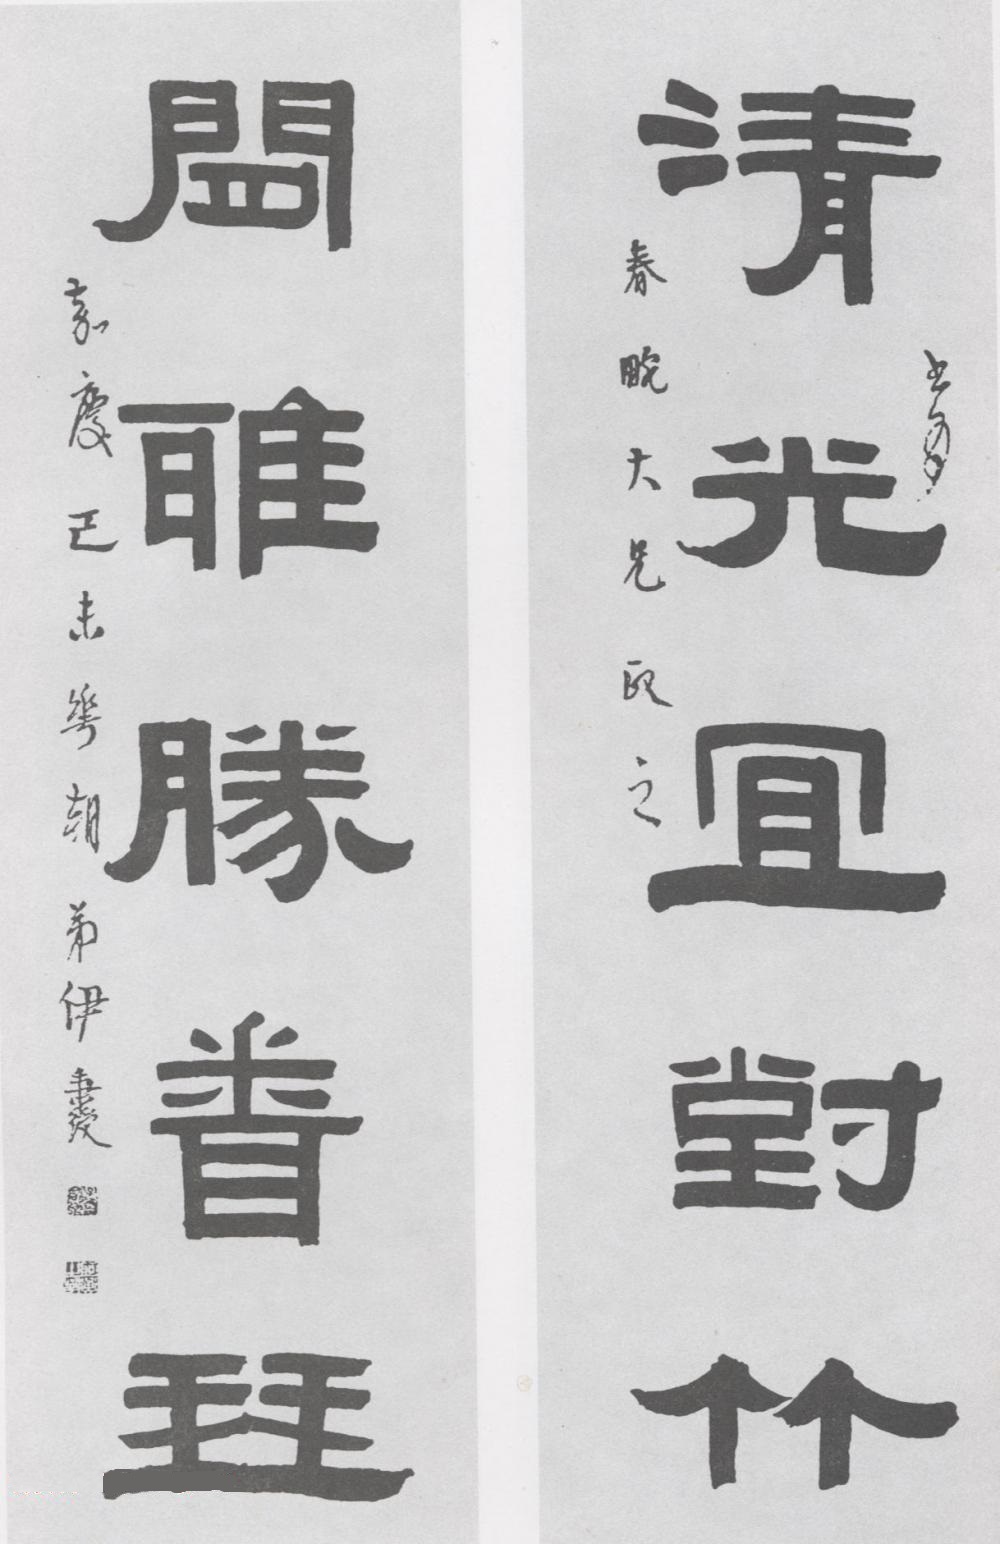 清光宜對竹
春畹大兄政之
閒雅勝琴
嘉慶己未華朝弟伊秉綬